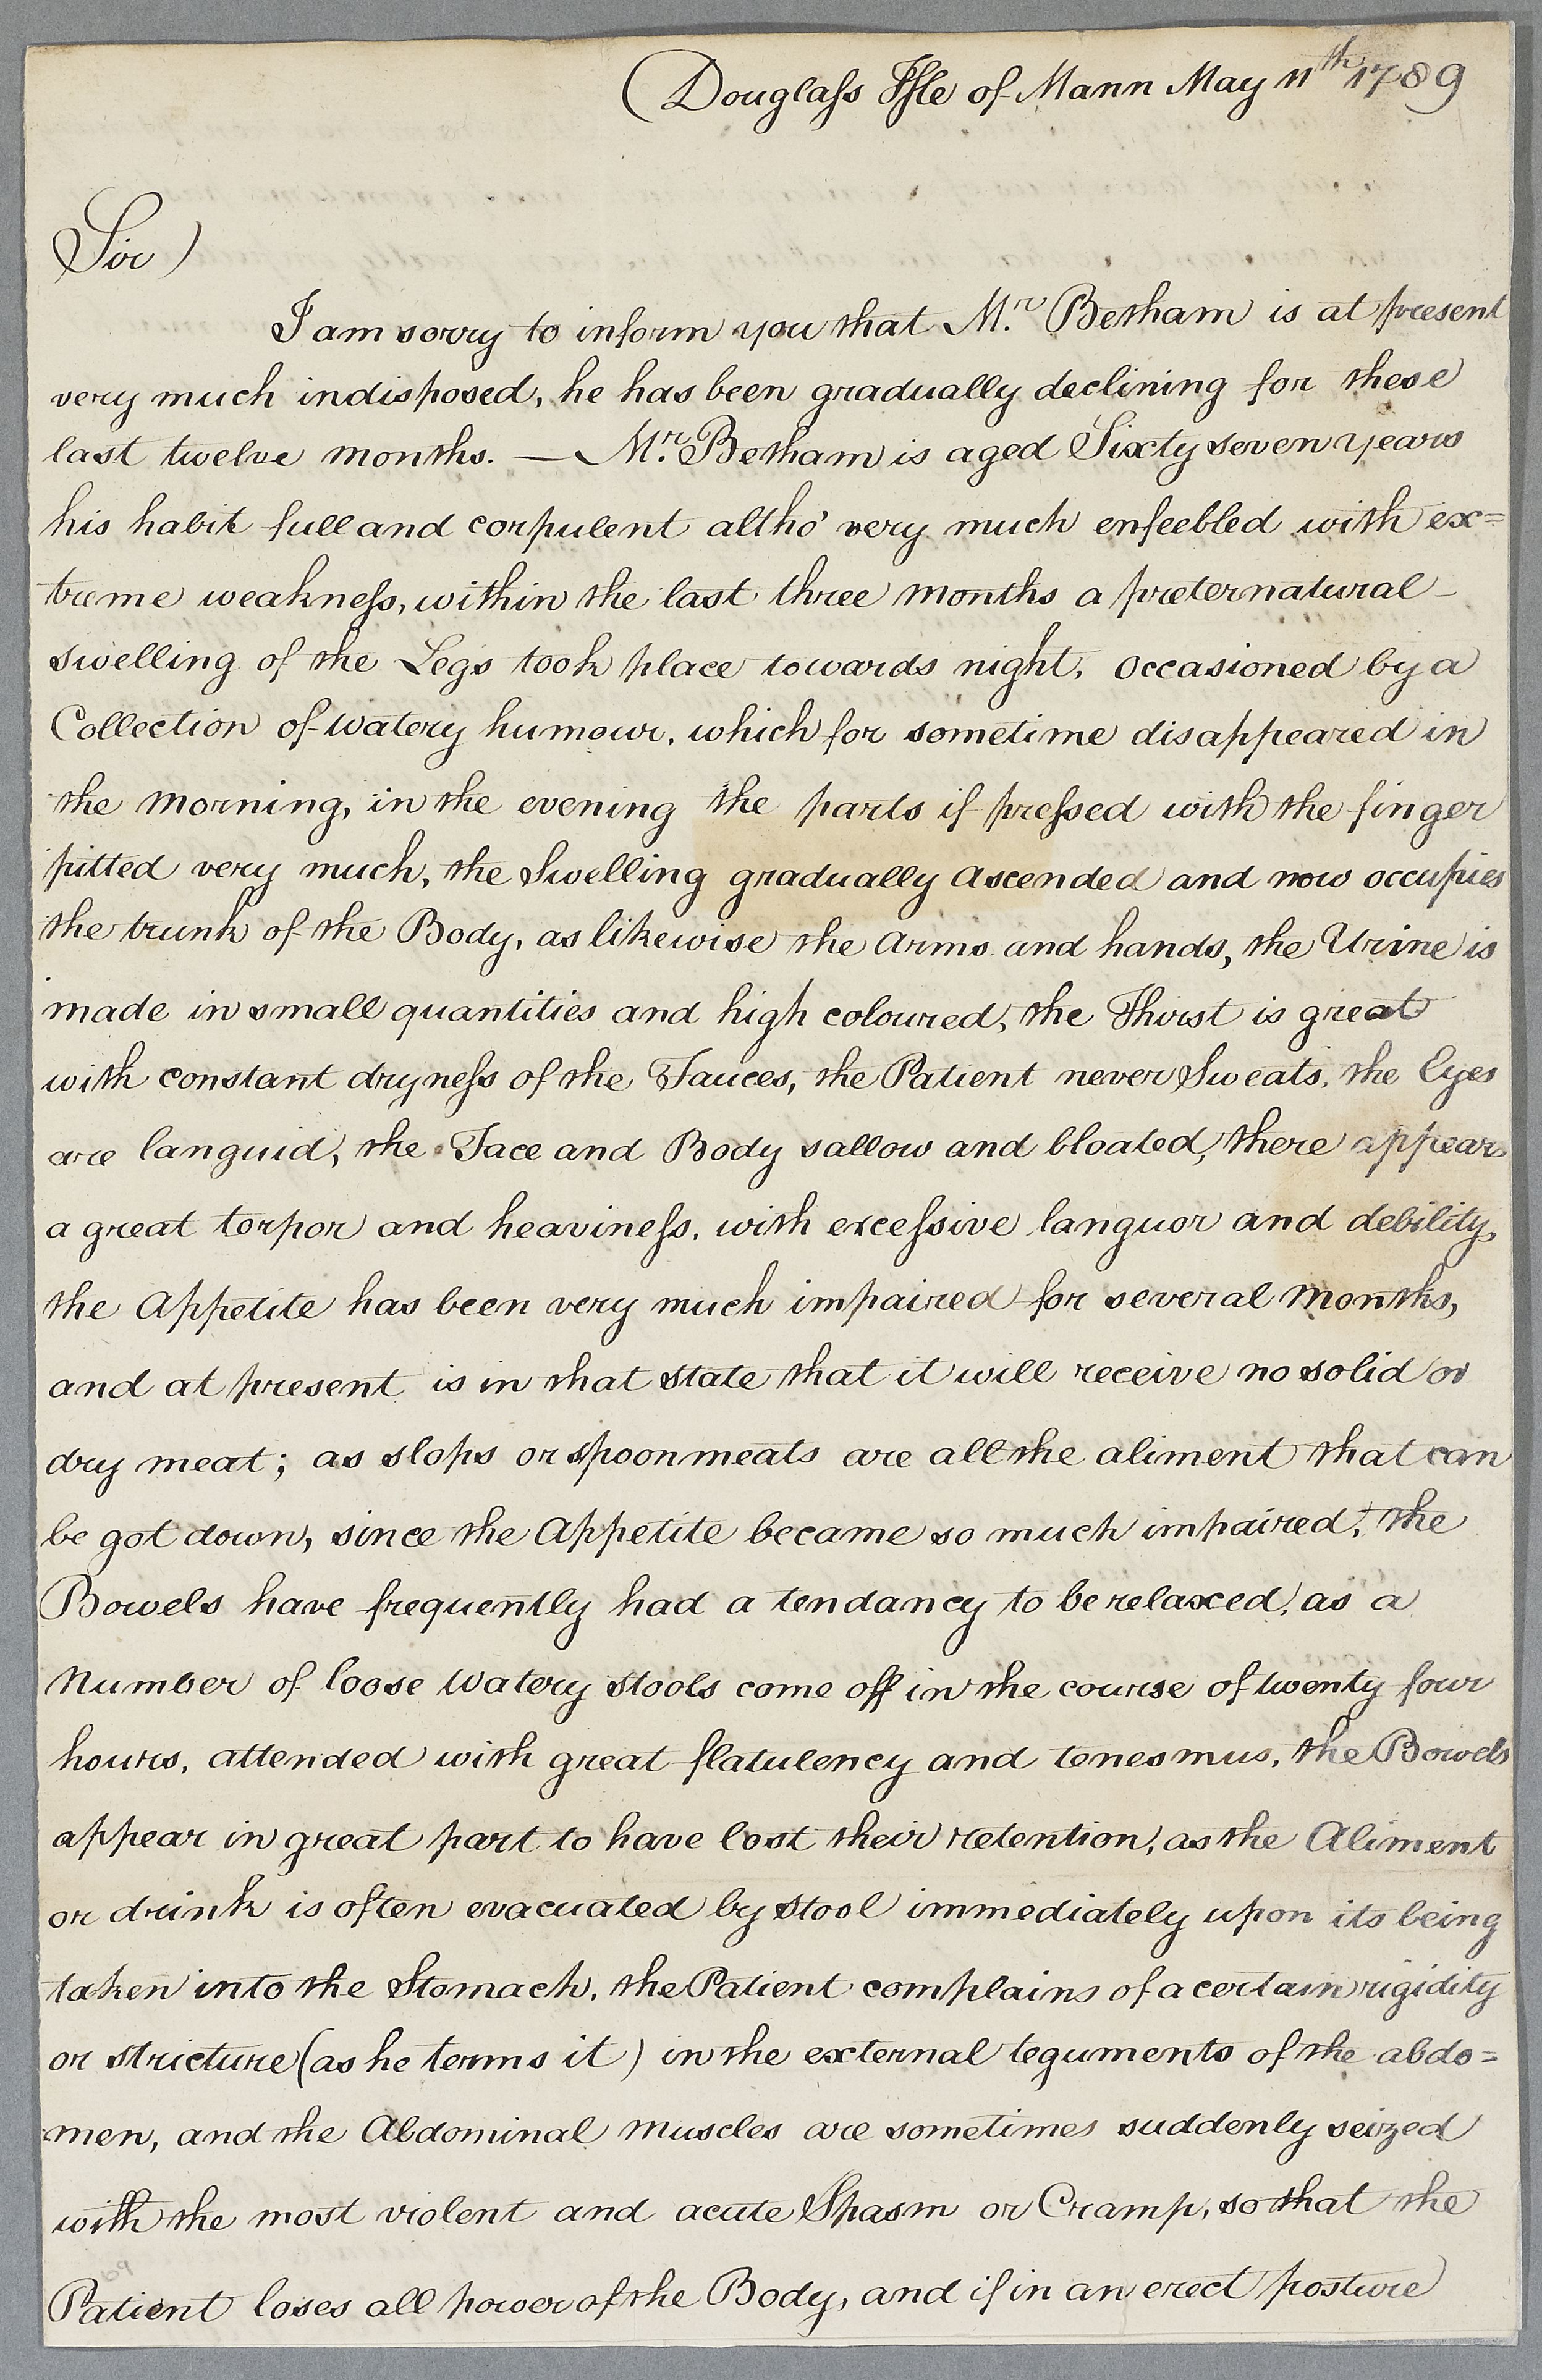 Douglass Isle of Mann May 11th 1789
Sir
I am sorry to inform you that Mr. Betham is at present
very much indisposed, he has been gradually declining for these
last twelve months. — Mr. Betham is aged Sixty seven years
his habit full and corpulent altho' very much enfeebled with ex=
treme weakness, within the last three months a preternatural
swelling of the Legs took place towards night, occasioned by a
Collection of watery humour, which for sometime disappeared in
the morning, in the evening the parts if pressed with the finger
pitted very much, the Swelling gradually ascended and now occupies
the trunk of the Body, as likewise the arms and hands, the Urine is
made in small quantities and high coloured, the Thirst is great
with constant dryness of the Fauces, the Patient never Sweats, the Eyes
are languid, the Face and Body sallow and bloated, there appears
a great torpor and heaviness, with excessive languor and debility,
the Appetite has been very much impaired for several months,
and at present is in that state that it will receive no solid or
dry meat; as slops or spoonmeats are all the aliment that can
be got down, since the Appetite became so much impaired, the
Bowels have frequently had a tendancy to be relaxed, as a
Number of loose Watery stools come off in the course of twenty four
hours, attended with great flatulency and tenesmus, the Bowels
appear in great part to have lost their retention, as the Aliment
or drink is often evacuated by stool immediately upon its being
taken into the Stomach, the Patient complains of a certain rigidity
or stricture (as he terms it) in the external teguments of the abdo=
men, and the Abdominal muscles are sometimes suddenly seized
with the most violent and acute Spasm or Cramp, so that the
Patient loses all power of the Body, and if in an erect posture